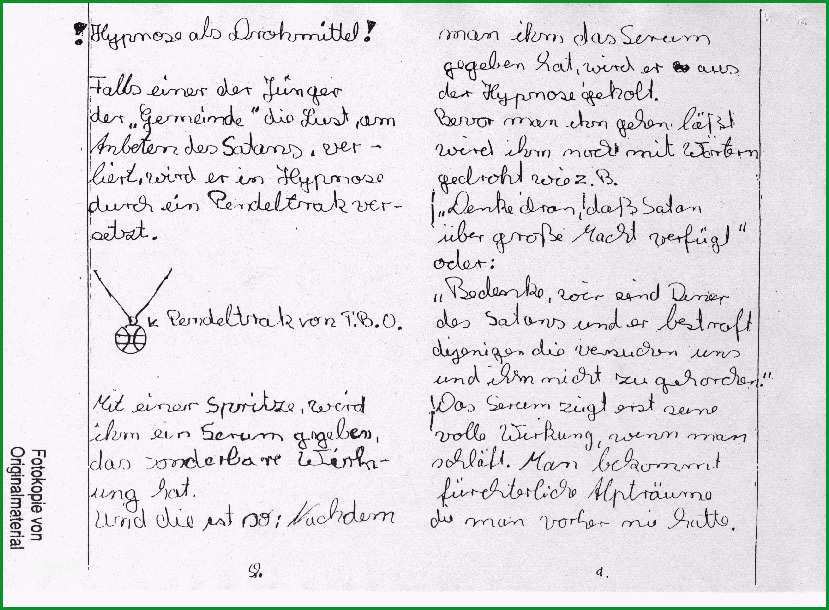 ! Hypnose als Drohmittel !
Falls einer der Jünger
der „Gemeinde“ die Lust, am
Anbeten des Satans, ver-
liert, wird er in Hypnose
durch ein Pendeltrak ver-
setzt.
Pendeltrak von T.B.O.
Mit einer Spritze, wird
ihm ein Serum gegeben,
das sonderbare Wirk-
ung hat.
Und die ist so: Nachdem
man ihm das Serum
gegeben hat, wird er aus
der Hypnose geholt.
Bevor man ihn gehen läßt
wird ihm noch mit Wörtern
gedroht wie z. B.
„Denke dran, daß Satan
über große Macht verfügt“
oder:
„Bedenke, wir sind Diner
des Satans und er bestraft
dijenigen die versuchen uns
und ihm nicht zu gehorchen.“
Das Serum zeigt erst seine
volle Wirkung, wenn man
schläft. Man bekommt
fürchterliche Alpträume
die man vorher nie hatte.
Fotokopie von
Originalmaterial